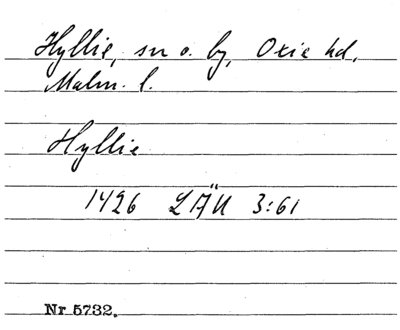 Hyllie, sn o. by, Oxie hd,
Malm. l.
Hyllie
1426 LÄU 3:61
Nr 5732.